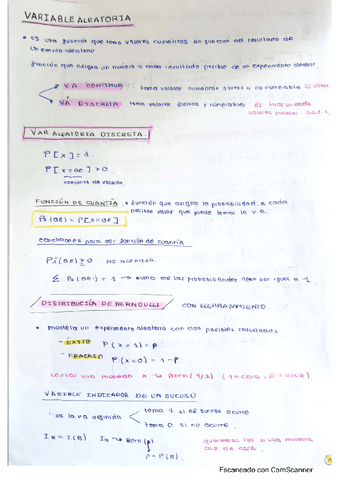 VARIABLE ALEATORIA
• es una función que toma valores numéricos en función del resultado de
un evento aleatorio
función que asigna un número a cada resultado posible de un experimento aleatorio.
V.A CONTINUA: toma valores numéricos no numerable
V.A DISCRETA: toma valores finitos y numerables Ej
VAR ALEATORIA DISCRETA.
P[X]=1.
P[X=x]>0
conjunto de valores
FUNCIÓN DE CUANTÍA • función que asigna la probabilidad a cada
posible valor que puede tomar la v.a
P(x)=P[X=x]
condiciones para ser función de cuantía
≥0 NO NEGATIVA.
= 1 → suma de las probabilidades debe ser igual a 1.
DISTRIBUCIÓN DE BERNOULLI CON REEMPLAZAMIENTO.
• modela un experimento aleatorio con dos posibles resultados
- ÉXITO P(x=1)=p
- FRACASO P(x=0)=1-p
una moneda X ~ Bern(1/2) (1=cara, 0=cruz)
VARIABLE INDICADOR DE UN SUCESO
es la va definida toma 1 si el suceso ocurre
toma 0 si no ocurre.
I_B = I(B) I_B ~ Bern(p) si una moneda
p = P(B). cae de cara.
Escaneado con CamScanner